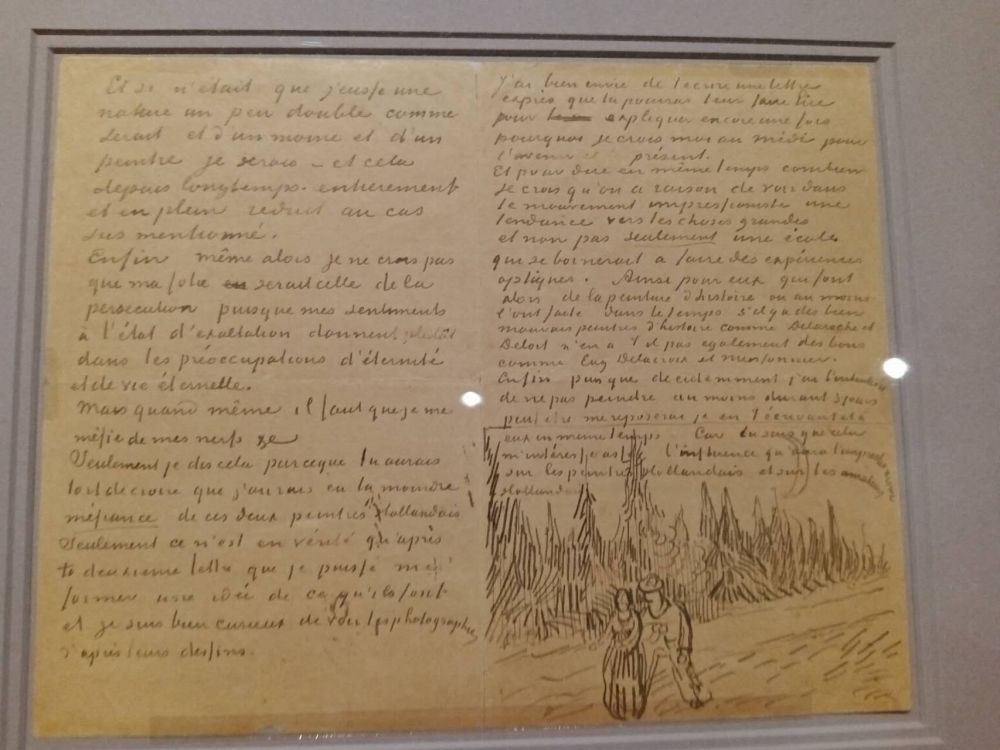 Et si n'était que j'eusse une
nature un peu double comme
serait et d'un moine et d'un
peintre je serais – et cela
depuis longtemps. entièrement
et en plein réduit au cas
sus mentionné.
Enfin même alors je ne crois pas
que ma folie serait celle de la
persecution puisque mes sentiments
à l'état d'exaltation donnent plutôt
dans les préoccupations d'éternité
et de vie éternelle.
Mais quand même il faut que je me
méfie de mes nerfs
Seulement je dis cela parceque tu aurais
tort de croire que j'aurais eu la moindre
méfiance de ces deux peintres Hollandais
Seulement ce n'est en vérité qu'après
ta deuxieme lettre que je puisse me
former une idée de ce qu'ils font
et je suis bien curieux de voir les photographies
d'après leurs dessins.
J'ai bien envie de t'ecrire une lettre
exprès que tu pourras leur faire lire
pour expliquer encore une fois
pourquoi je crois moi au midi pour
l'avenir et présent.
Et pour dire en même temps combien
Je crois qu'on a raison de voir dans
le mouvement impressioniste une
tendance vers les choses grandes
et non pas seulement une école
qui se bornerait à faire des expériences
optiques. Ainsi pour eux qui font
alors de la peinture d'histoire ou au moins
l'ont faite dans le temps s'il y a des bien
mauvais peintres d'histoire comme Delaroche et
Delort n'en a t'il pas egalement des bons
comme Eug Delacroix et Meissonier.
Enfin puisque decidemment j'ai l'intention
de ne pas peindre au moins durant 3 jours
peut être me reposerai je en t'écrivant et à
eux en même temps. Car tu sais que cela
m'intéresse l'influence qu'aura l'impressionisme
sur les peintres Hollandais et sur les amateurs
Hollandais